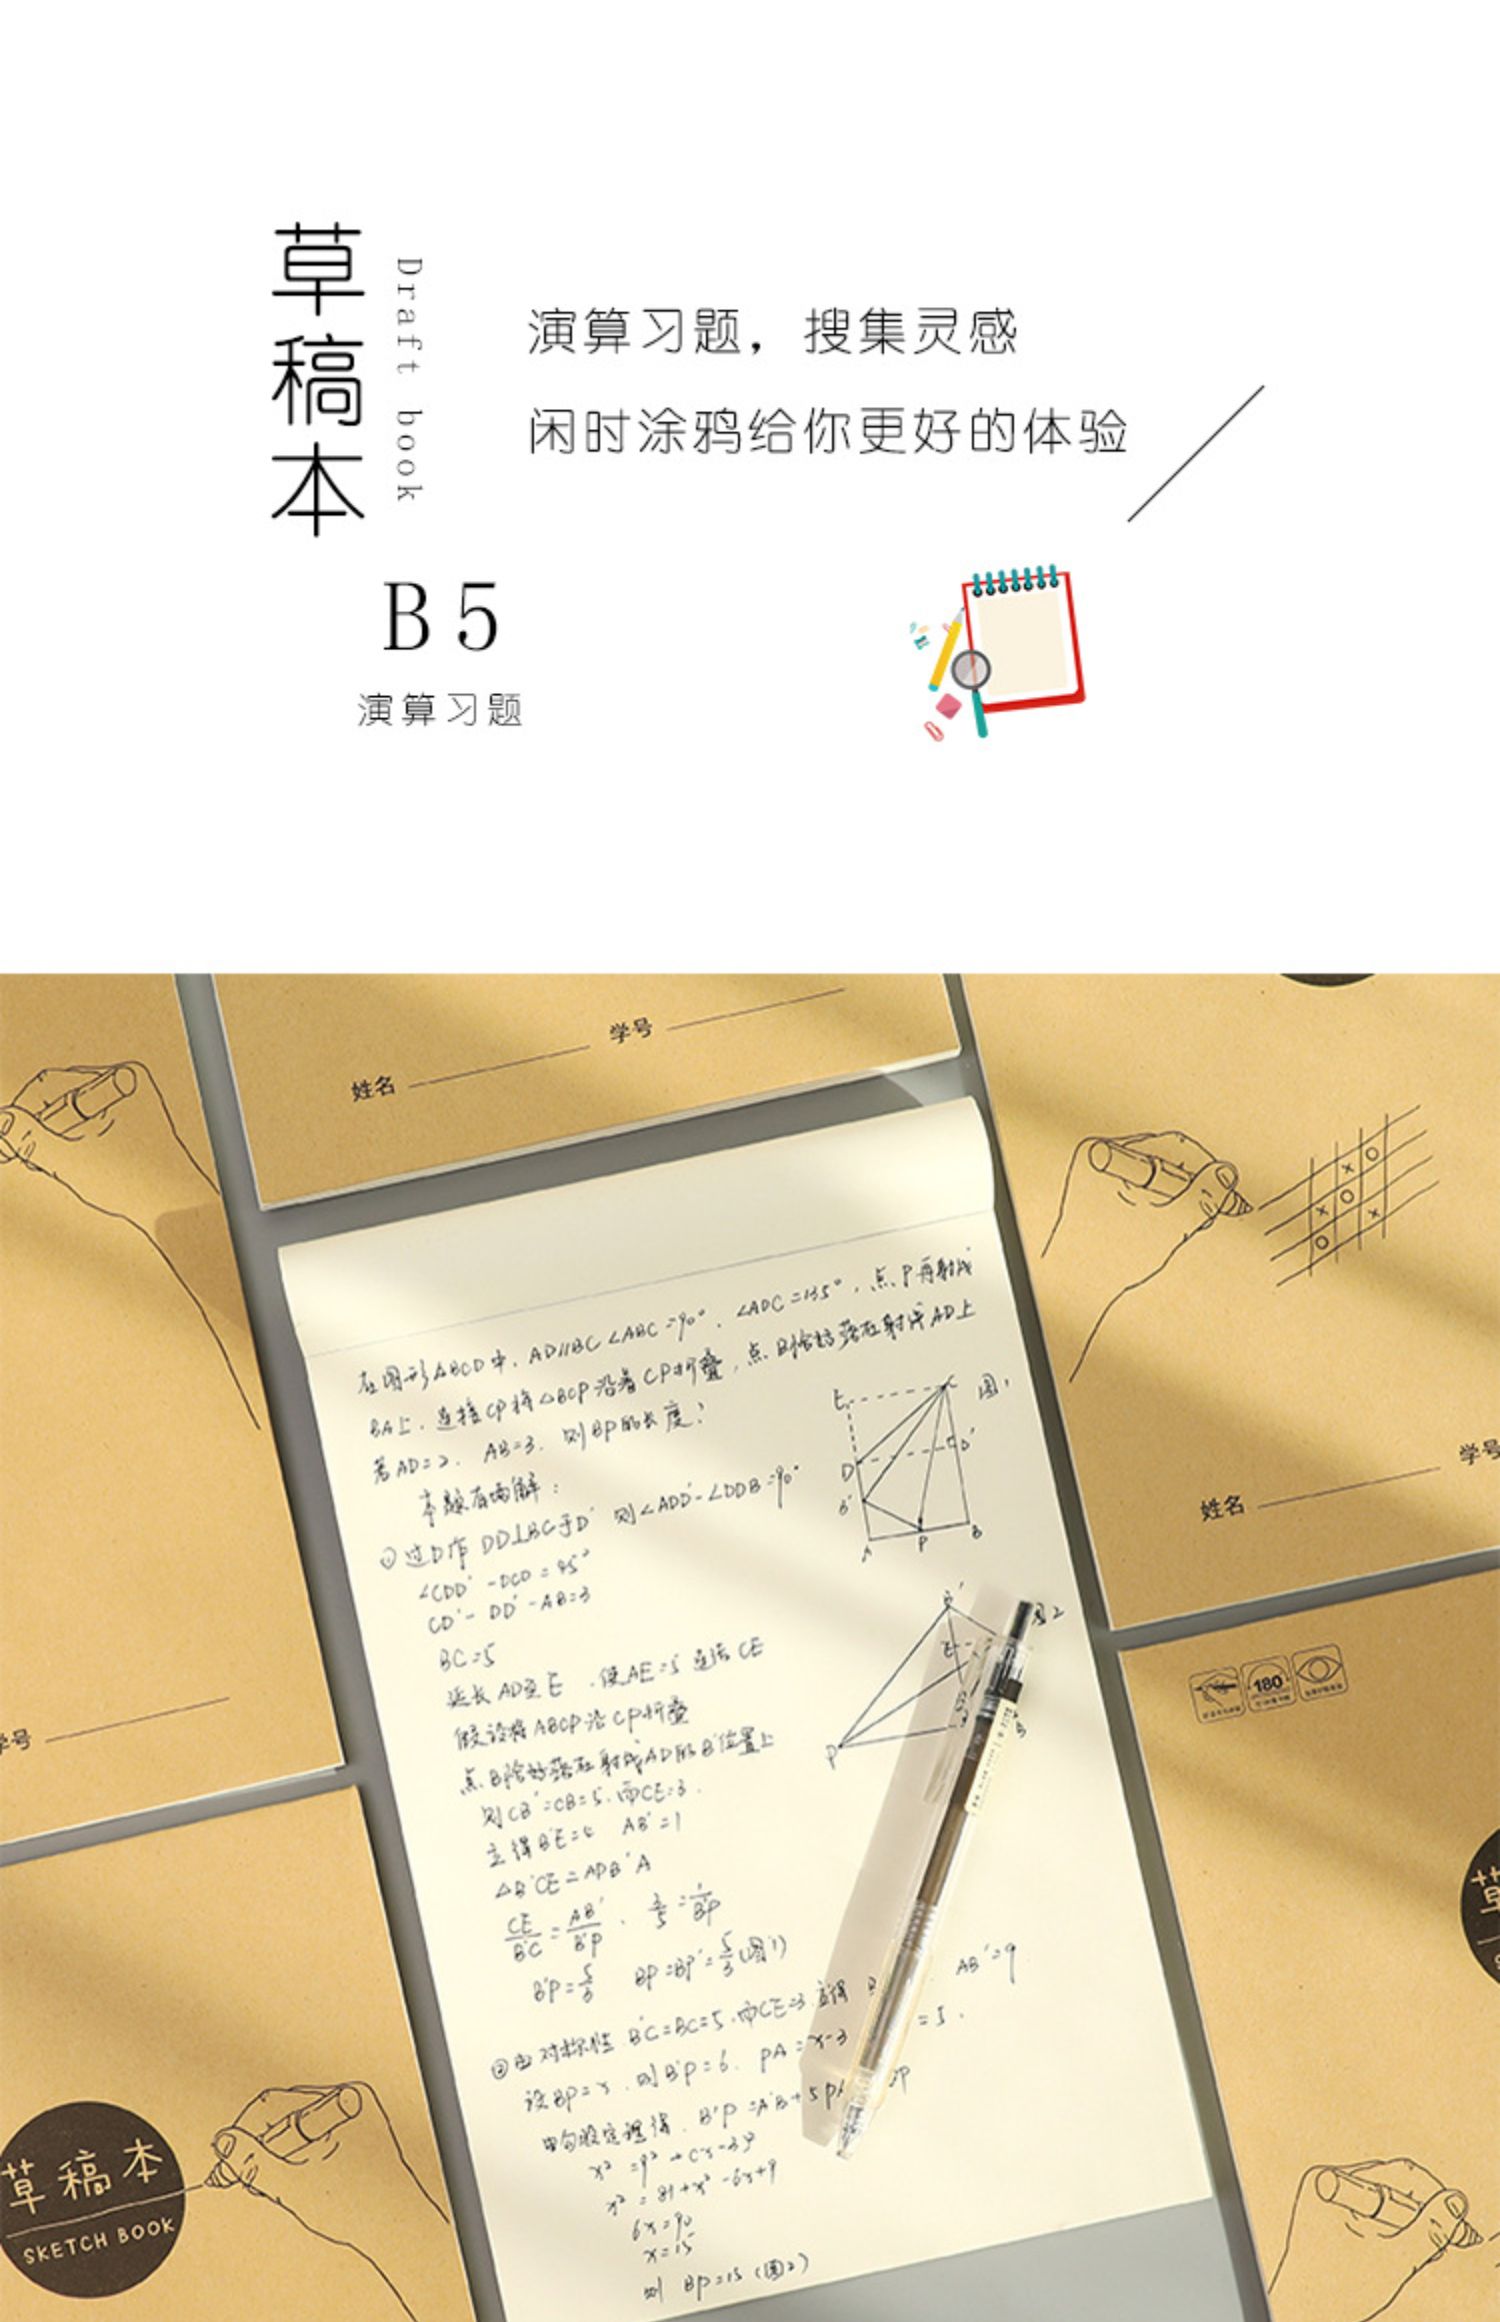 草稿本
Draft book
演算习题，搜集灵感
闲时涂鸦给你更好的体验
B5
演算习题
学号
姓名
在图形ABCD中，AD//BC ∠ABC=90°，∠ADC=135°，点P再射线
BA上，连接CP将△BCP沿着CP折叠，点B恰好落在射线AD上
若AD=2，AB=3，则BP的长度？
本题有两解：
①过D作 DD⊥BC于D' 则∠ADD'-∠DDB=90°
∠CDD'-DCD=45°
CD'-DD'-AB=3
BC=5
延长AD至E，使AE=5 连接CE
假设将ABCP沿CP折叠
点B恰好落在射线AD的B'位置上
则CB'=CB=5，而CE=3
AB'=1
CE/B'C=AB'/B'P
B'P=5/3 BP=BP'=5/3(图1)
②由对称性 B'C=BC=5，而CE=3
AB'=9
设BP=x，则B'P=6，PA=x-3
=5
由勾股定理得，
6x=90
x=15
则 BP=15(图2)
E
C
图1
D
D'
B'
A
P
B
B'
图2
P
学号
姓名
学号
180°
草稿本
SKETCH BOOK
草